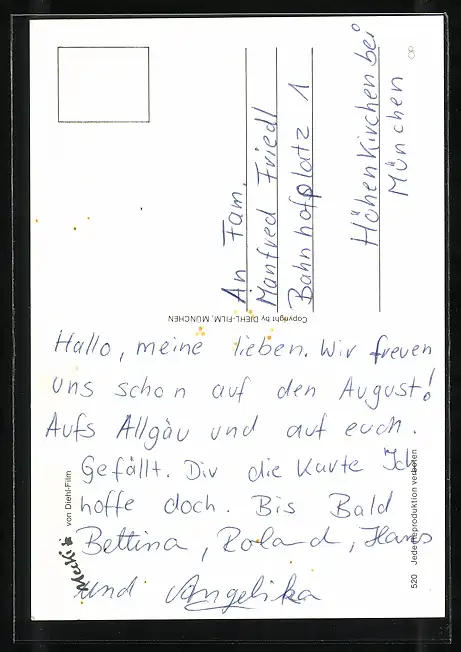 An Fam.
Manfred Friedl
Bahnhofplatz 1
Höhenkirchen bei
München
Copyright by DIEHL-FILM, MÜNCHEN
Hallo, meine lieben. Wir freuen
uns schon auf den August!
Aufs Allgäu und auf euch.
Gefällt. Dir die Karte Ich
hoffe doch. Bis Bald
Bettina, Roland, Hans
und Angelika
Mecki von Diehl-Film
520 Jede Reproduktion verboten